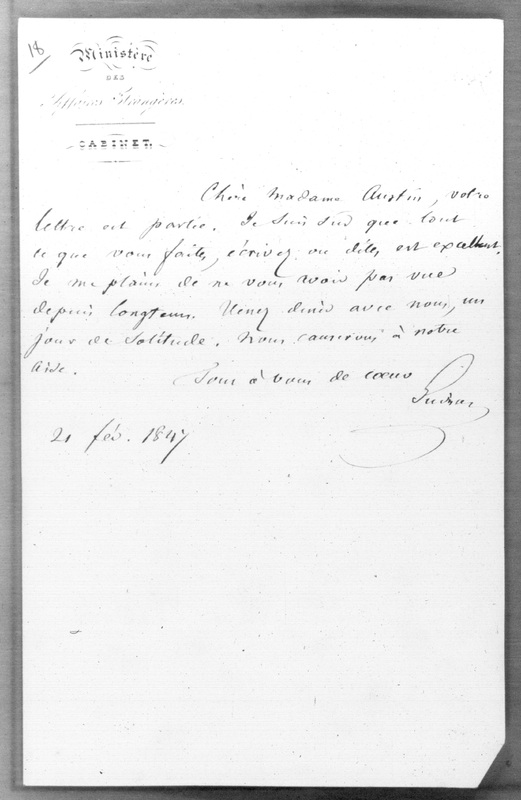 18
Ministère
DES
Affaires Étrangères.
CABINET.
Chère Madame Austin, votre
lettre est partie. Je suis sûr que tout
ce que vous faites, écrivez ou dites est excellent.
Je me plains de ne vous avoir pas vue
depuis longtems. Venez diner avec nous, un
jour de solitude. Nous causerons à notre
aise.
Tout à vous de coeur
Guizot
21 fév. 1847